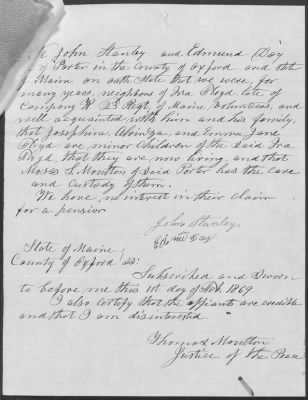 John Stanley and Edmund Day
of Porter in the County of Oxford and State
of Maine on oath State that we were, for
many years, neighbors of Ira Floyd late of
Company 23 Regt. of Maine Volunteers, and
well acquainted with him and his family,
that Josephine, and Emma Jane
Floyd are minor Children of the Said Ira
Floyd, that they are now living, and that
Moses S. Moulton of Said Porter has the care
and Custody of them.
We have no interest in their claim
for a pension
John Stanley
Edmund Day
State of Maine
County of Oxford SS:
Subscribed and Sworn
to before me this 1st day of Feb. 1869.
I also Certify that the affiants are credible
and that I am disinterested.
Thomas Moulton
Justice of the Peace